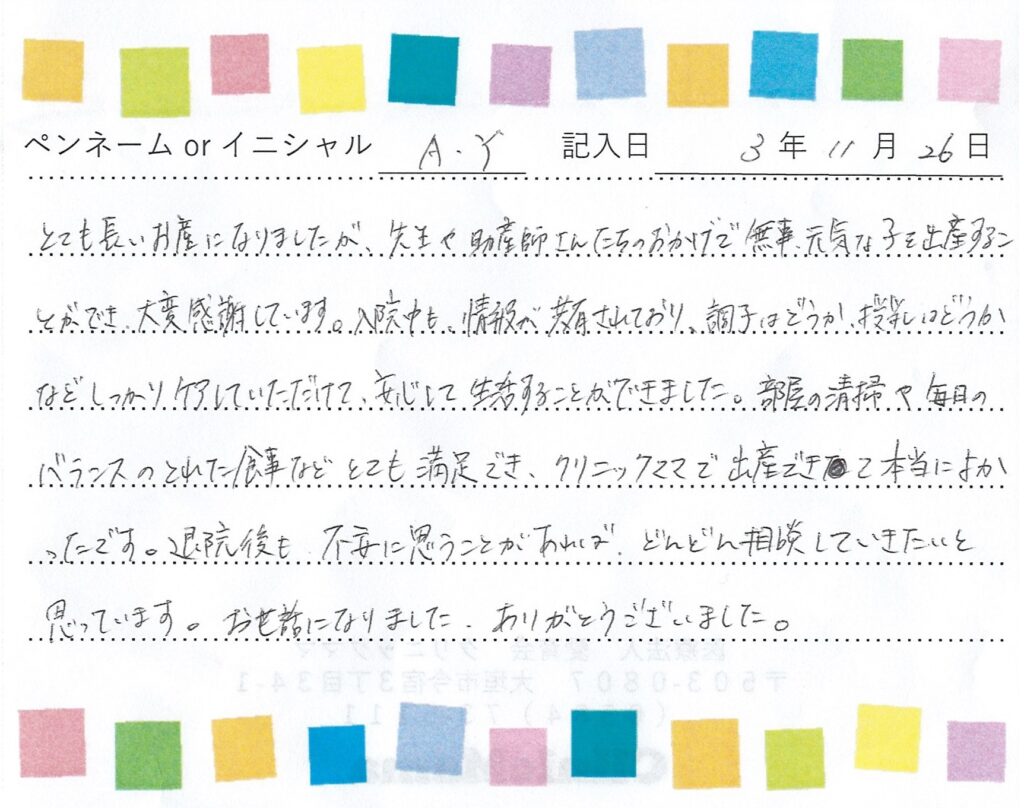 ペンネーム or イニシャル A.Y 記入日 3 年 11 月 26 日
とても長いお産になりましたが、先生や助産師さんたちのおかげで無事、元気な子を出産するこ
とができ、大変感謝しています。入院中も、情報が共有されており、調子はどうか、授乳はどうか
などしっかりケアしていただけて、安心して生活することができました。部屋の清掃や毎日の
バランスのとれた食事などとても満足でき、クリニックママで出産できて本当によか
ったです。退院後も、不安に思うことがあれば、どんどん相談していきたいと
思っています。お世話になりました。ありがとうございました。
医療法人 愛育会 クリニックママ
〒503-0807 大垣市今宿3丁目34-1